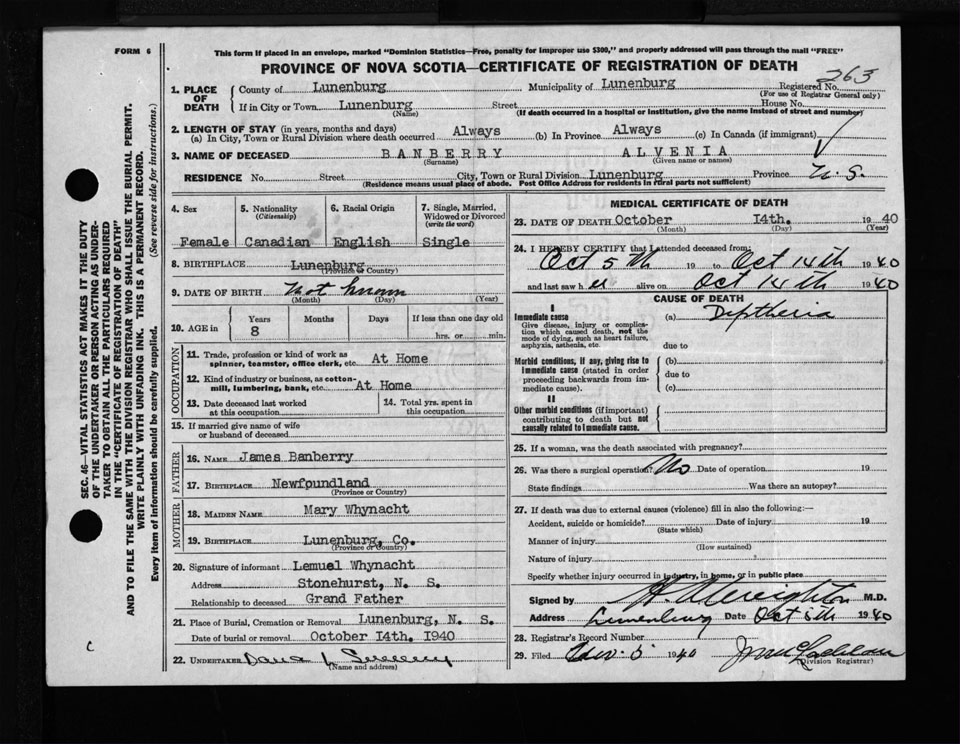 FORM 6
This form if placed in an envelope, marked "Dominion Statistics—Free, penalty for improper use $300," and properly addressed will pass through the mail "FREE"
PROVINCE OF NOVA SCOTIA—CERTIFICATE OF REGISTRATION OF DEATH
263
1. PLACE OF DEATH
County of Lunenburg Municipality of Lunenburg Registered No.
(For use of Registrar General only)
If in City or Town Lunenburg Street House No.
(Name) (If death occurred in a hospital or institution, give the name instead of street and number)
2. LENGTH OF STAY (in years, months and days)
(a) In City, Town or Rural Division where death occurred Always (b) In Province Always (c) In Canada (if immigrant)
3. NAME OF DECEASED BANBERRY ALVENIA
(Surname) (Given name or names)
RESIDENCE No. Street City, Town or Rural Division Lunenburg Province N. S.
(Residence means usual place of abode. Post Office Address for residents in rural parts not sufficient)
4. Sex 5. Nationality (Citizenship) 6. Racial Origin 7. Single, Married, Widowed or Divorced (write the word)
Female Canadian English Single
8. BIRTHPLACE Lunenburg
(Province or Country)
9. DATE OF BIRTH Not known
(Month) (Day) (Year)
10. AGE in Years Months Days If less than one day old
8 hrs. or min.
OCCUPATION
11. Trade, profession or kind of work as spinner, teamster, office clerk, etc. At Home
12. Kind of industry or business, as cotton-mill, lumbering, bank, etc. At Home
13. Date deceased last worked at this occupation 14. Total yrs. spent in this occupation
15. If married give name of wife or husband of deceased
FATHER
16. NAME James Banberry
17. BIRTHPLACE Newfoundland
(Province or Country)
MOTHER
18. MAIDEN NAME Mary Whynacht
19. BIRTHPLACE Lunenburg, Co.
(Province or Country)
20. Signature of informant Lemuel Whynacht
Address Stonehurst, N. S.
Relationship to deceased Grand Father
21. Place of Burial, Cremation or Removal Lunenburg, N. S.
Date of burial or removal October 14th. 1940
22. UNDERTAKER
(Name and address)
MEDICAL CERTIFICATE OF DEATH
23. DATE OF DEATH October 14th. 1940
(Month) (Day) (Year)
24. I HEREBY CERTIFY that I attended deceased from:
Oct 5th 19 to Oct 14th 1940
and last saw h er alive on Oct 14th 1940
CAUSE OF DEATH
I
Immediate cause (a) Diptheria
Give disease, injury or complication which caused death, not the mode of dying, such as heart failure, asphyxia, asthenia, etc.
due to
Morbid conditions, if any, giving rise to immediate cause (stated in order proceeding backwards from immediate cause).
(b)
due to
(c)
II
Other morbid conditions (if important) contributing to death but not causally related to immediate cause.
25. If a woman, was the death associated with pregnancy?
26. Was there a surgical operation? No Date of operation 19
State findings Was there an autopsy?
27. If death was due to external causes (violence) fill in also the following:—
Accident, suicide or homicide? Date of injury 19
(State which)
Manner of injury
(How sustained)
Nature of injury
Specify whether injury occurred in industry, in home, or in public place
Signed by H. A. Creighton M.D.
Address Lunenburg Date Oct 5th 1940
28. Registrar's Record Number
29. Filed Nov. 5 1940
(Division Registrar)
SEC. 46—VITAL STATISTICS ACT MAKES IT THE DUTY
OF THE UNDERTAKER OR PERSON ACTING AS UNDER-
TAKER TO OBTAIN ALL THE PARTICULARS REQUIRED
IN THE "CERTIFICATE OF REGISTRATION OF DEATH"
AND TO FILE THE SAME WITH THE DIVISION REGISTRAR WHO SHALL ISSUE THE BURIAL PERMIT.
WRITE PLAINLY WITH UNFADING INK. THIS IS A PERMANENT RECORD.
Every item of Information should be carefully supplied. (See reverse side for instructions.)
C